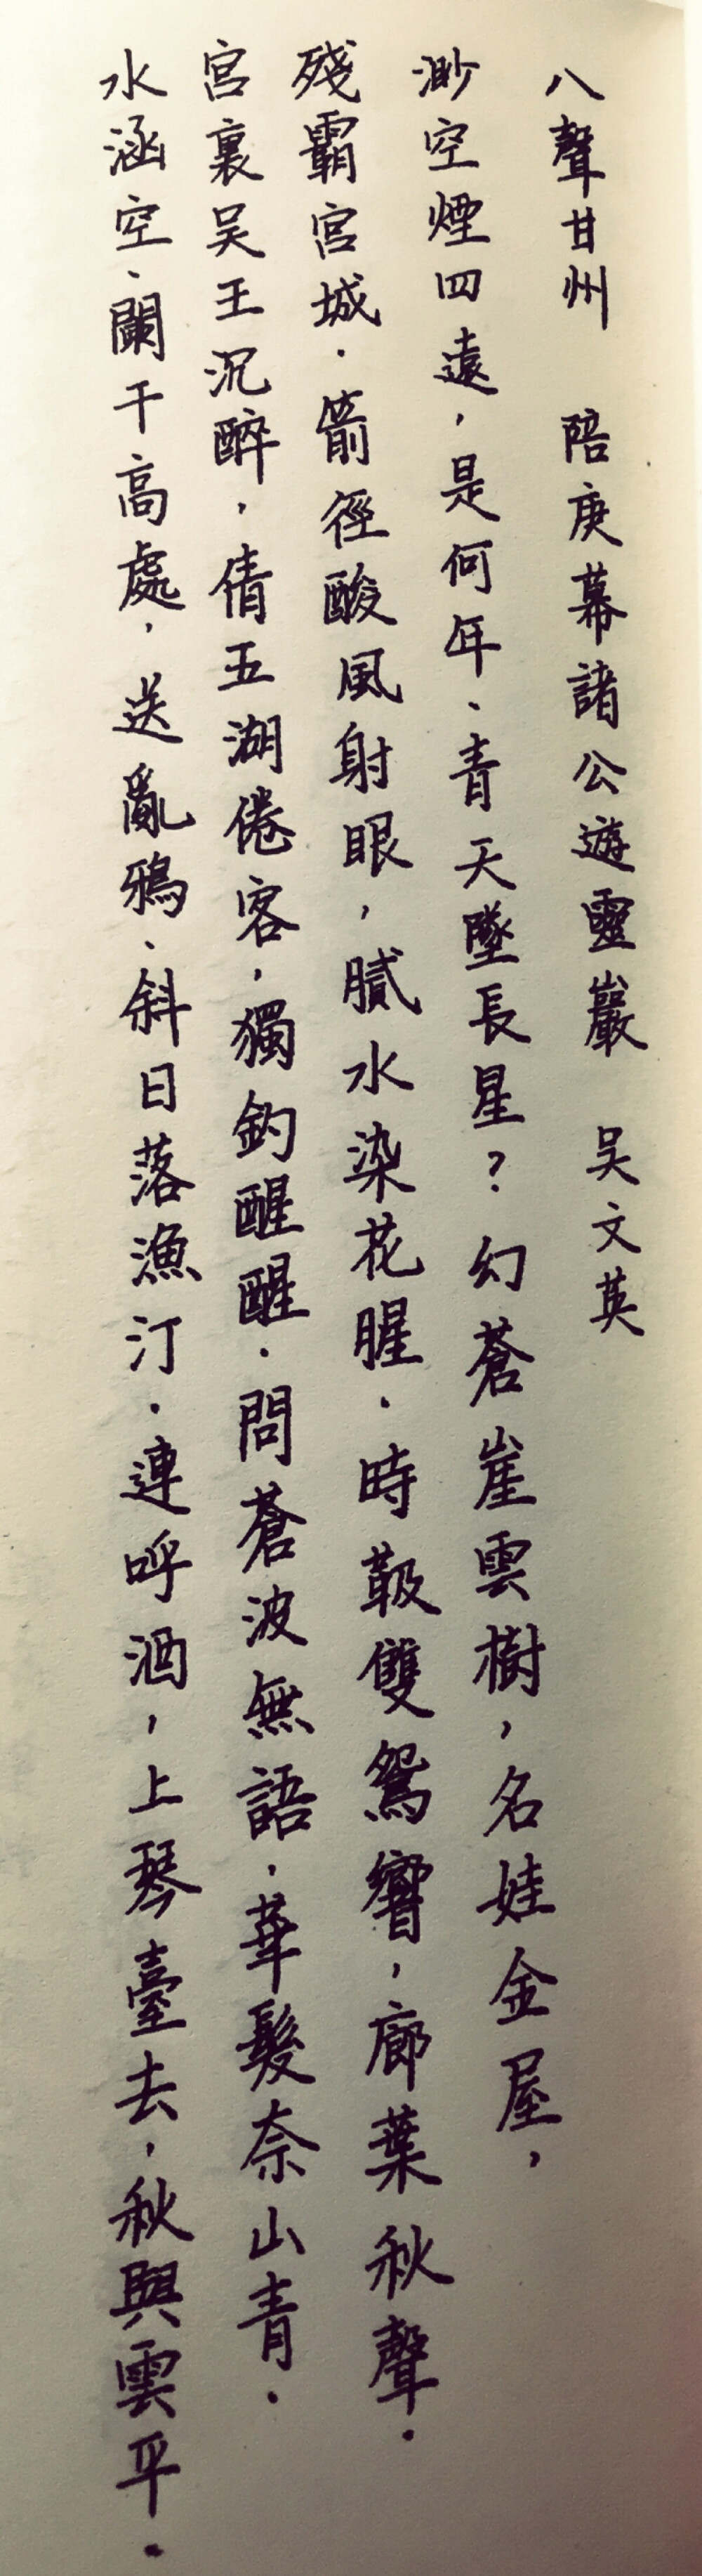 八聲甘州　陪庚幕諸公遊靈巖　吴文英
渺空煙四遠，是何年、青天墜長星？幻蒼崖雲樹，名娃金屋，
殘霸宮城．箭徑酸風射眼，膩水染花腥．時靸雙鴛響，廊葉秋聲．
宮裏吴王沉醉，倩五湖倦客，獨釣醒醒．問蒼波無語．華髮奈山青．
水涵空、闌干高處，送亂鴉、斜日落漁汀．連呼酒，上琴臺去，秋與雲平．